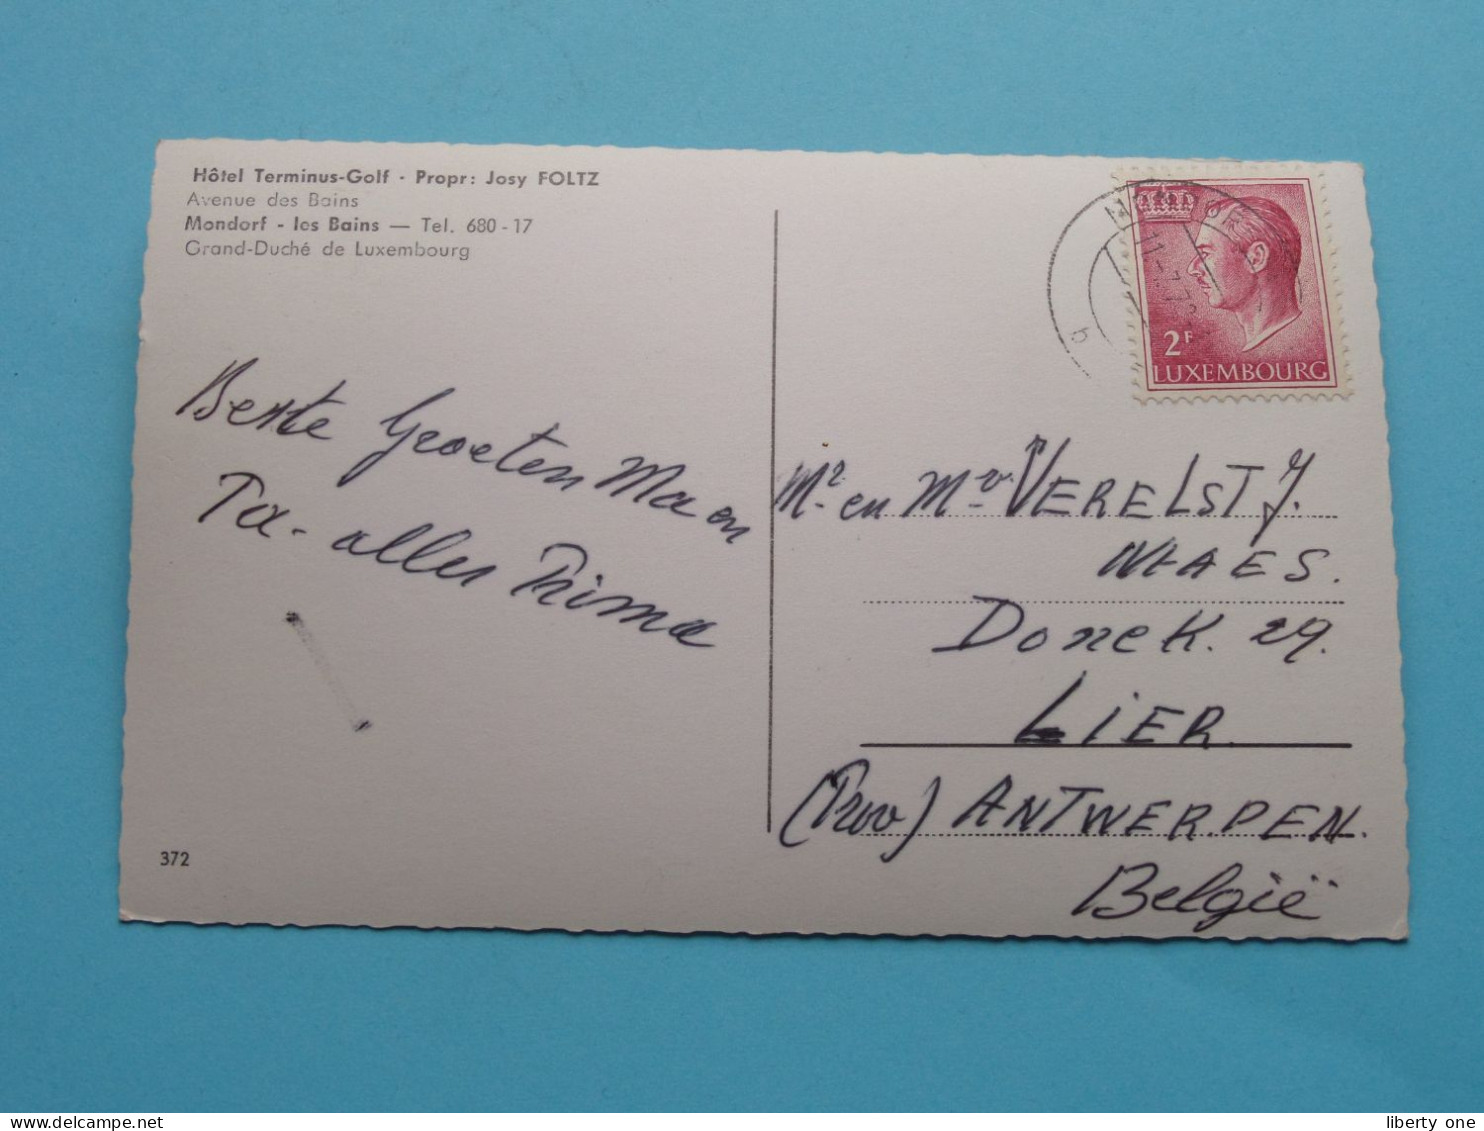 Hôtel Terminus-Golf - Propr: Josy FOLTZ
Avenue des Bains
Mondorf - les Bains — Tel. 680-17
Grand-Duché de Luxembourg
Beste Groeten Ma en
Pa - alles Prima
372
2F
LUXEMBOURG
11-7-72
b
Mr en Mv VERELST J.
MAES.
Donck. 29.
LIER
(Prov) ANTWERPEN.
België
delcampe.net
liberty one